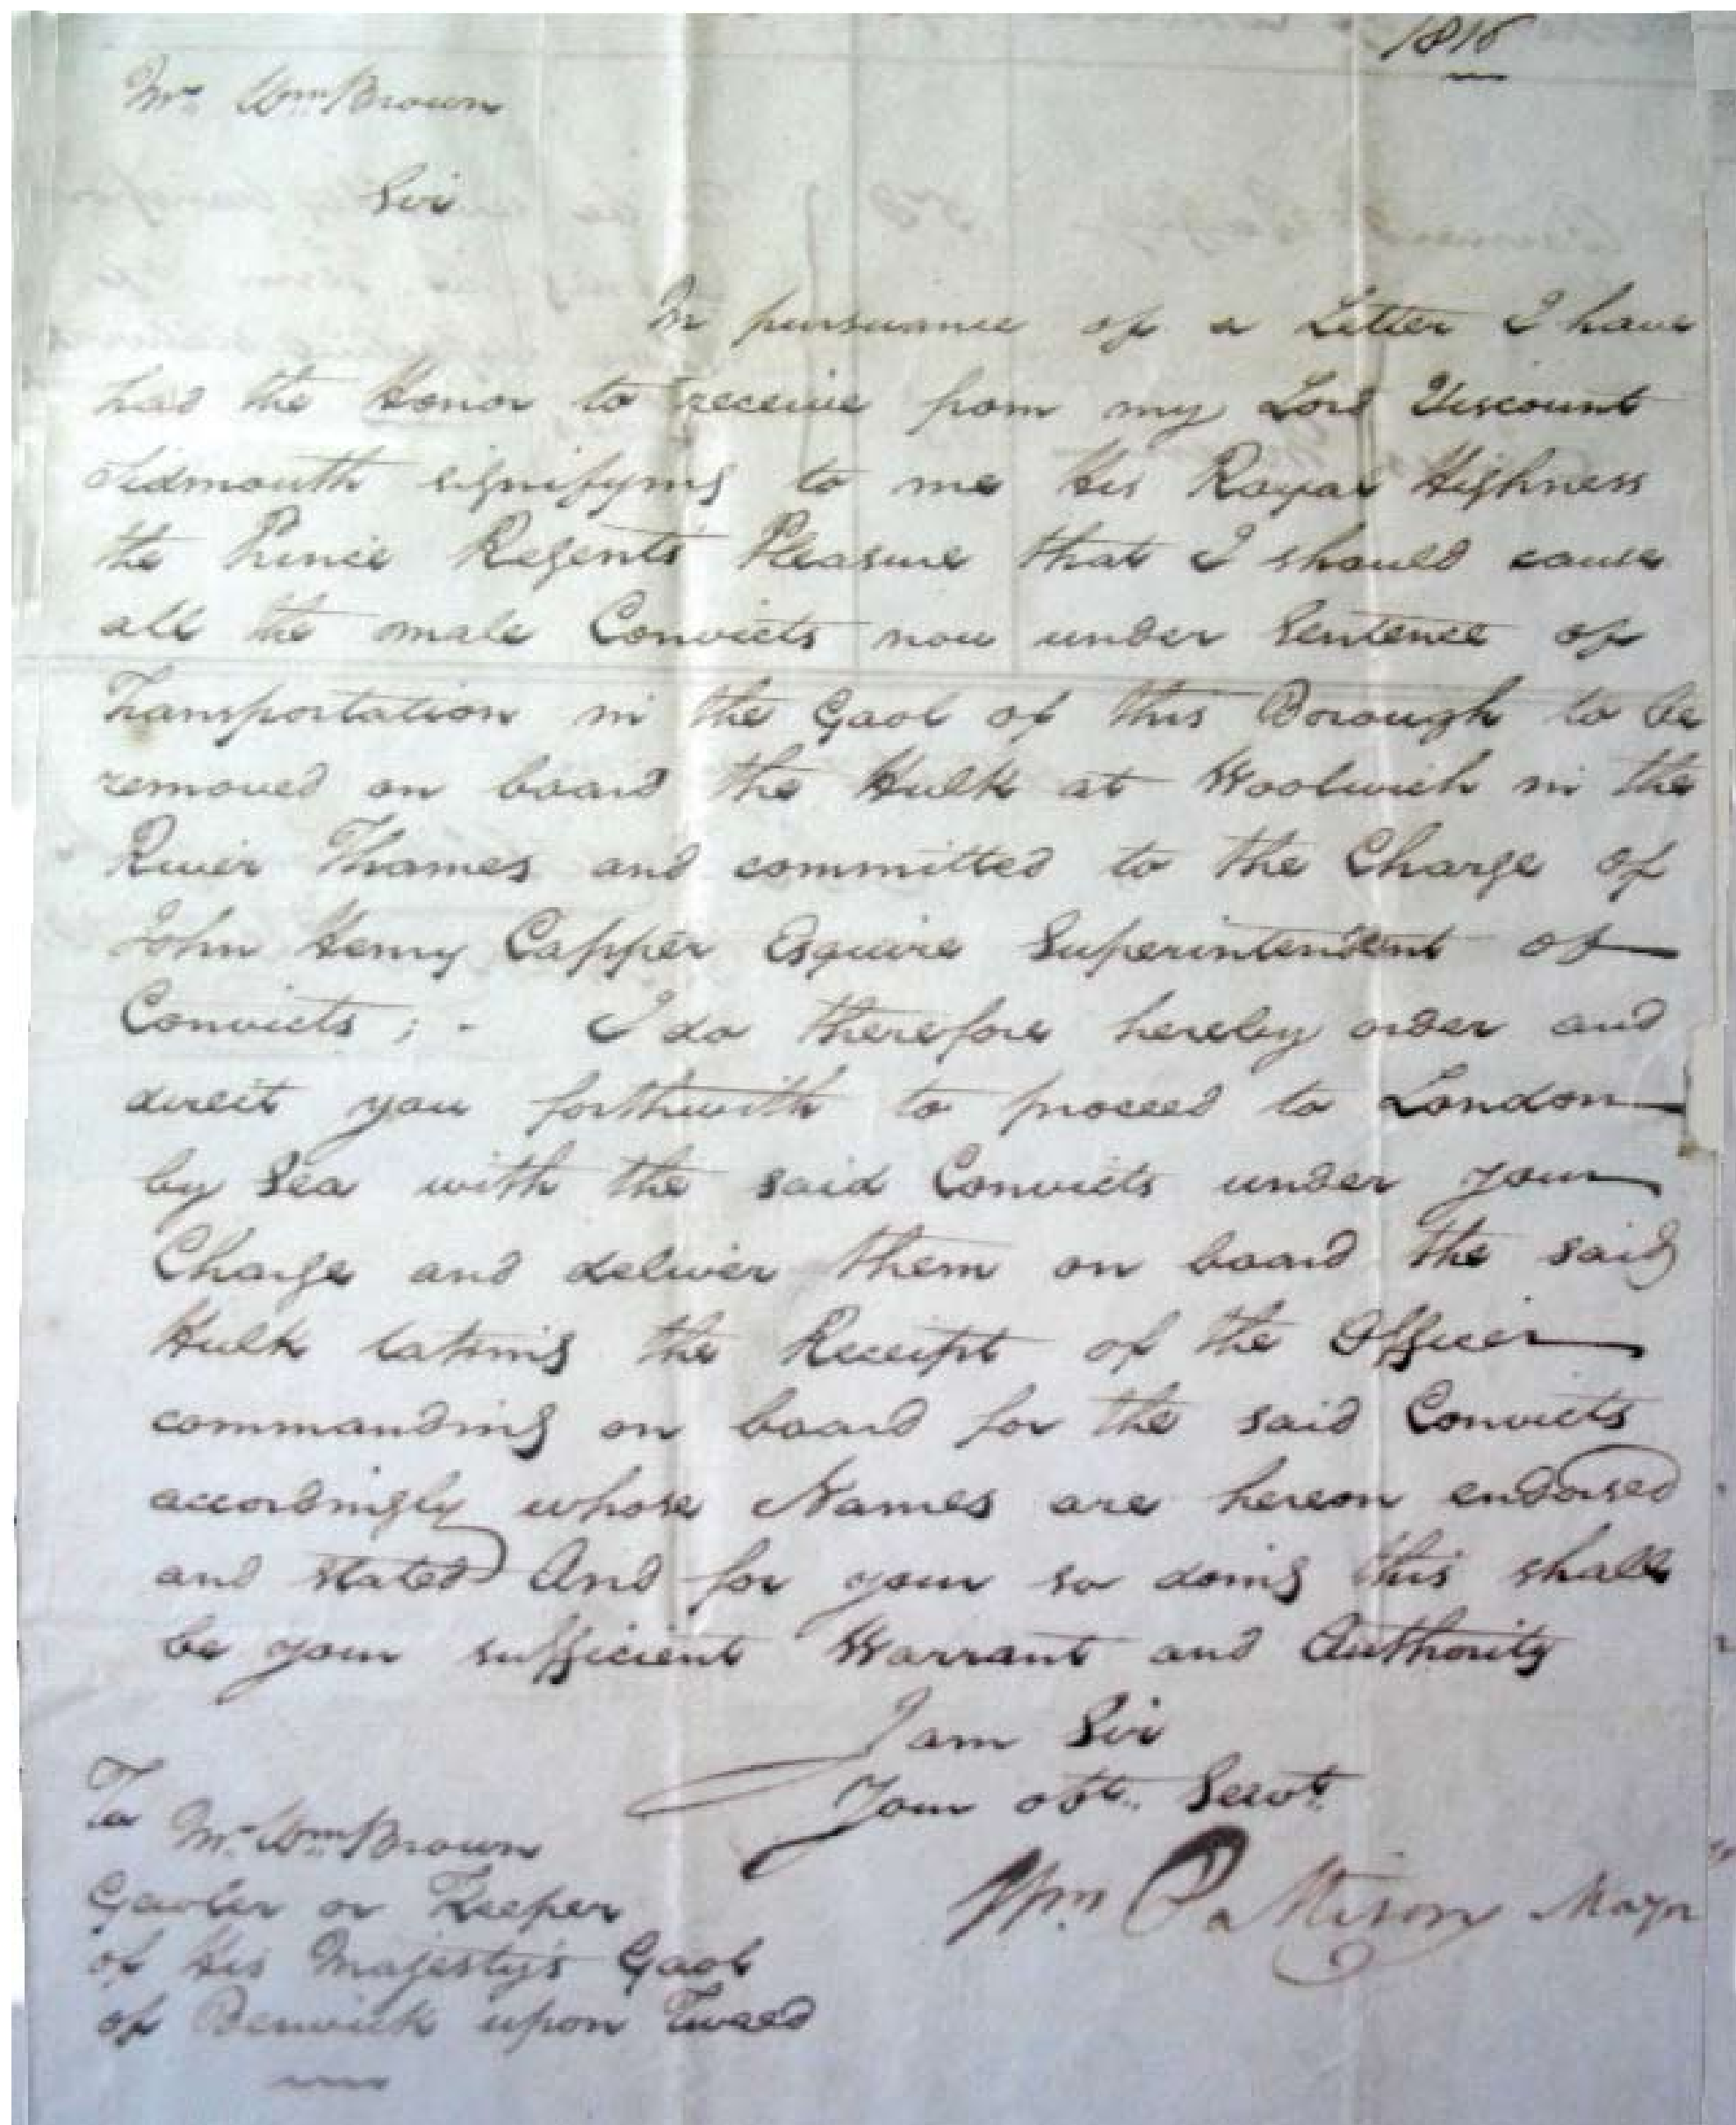 1818
Mr. Wm. Brown
Sir
In pursuance of a Letter I have
had the Honor to receive from my Lord Viscount
Sidmouth signifying to me His Royal Highness
the Prince Regents Pleasure that I should cause
all the male Convicts now under Sentence of
Transportation in the Gaol of this Borough to be
removed on board the Hulk at Woolwich in the
River Thames and committed to the Charge of
John Henry Capper Esquire Superintendent of
Convicts ; - I do therefore hereby order and
direct you forthwith to proceed to London
by Sea with the said Convicts under your
Charge and deliver them on board the said
Hulk taking the Receipt of the Officer
commanding on board for the said Convicts
accordingly whose Names are hereon endorsed
and stated And for your so doing this shall
be your sufficient Warrant and Authority
I am Sir
Your obt. Servt.
Wm. Pattison Mayr
To
Mr. Wm. Brown
Gaoler or Keeper
of His Majesty's Gaol
of Berwick upon Tweed